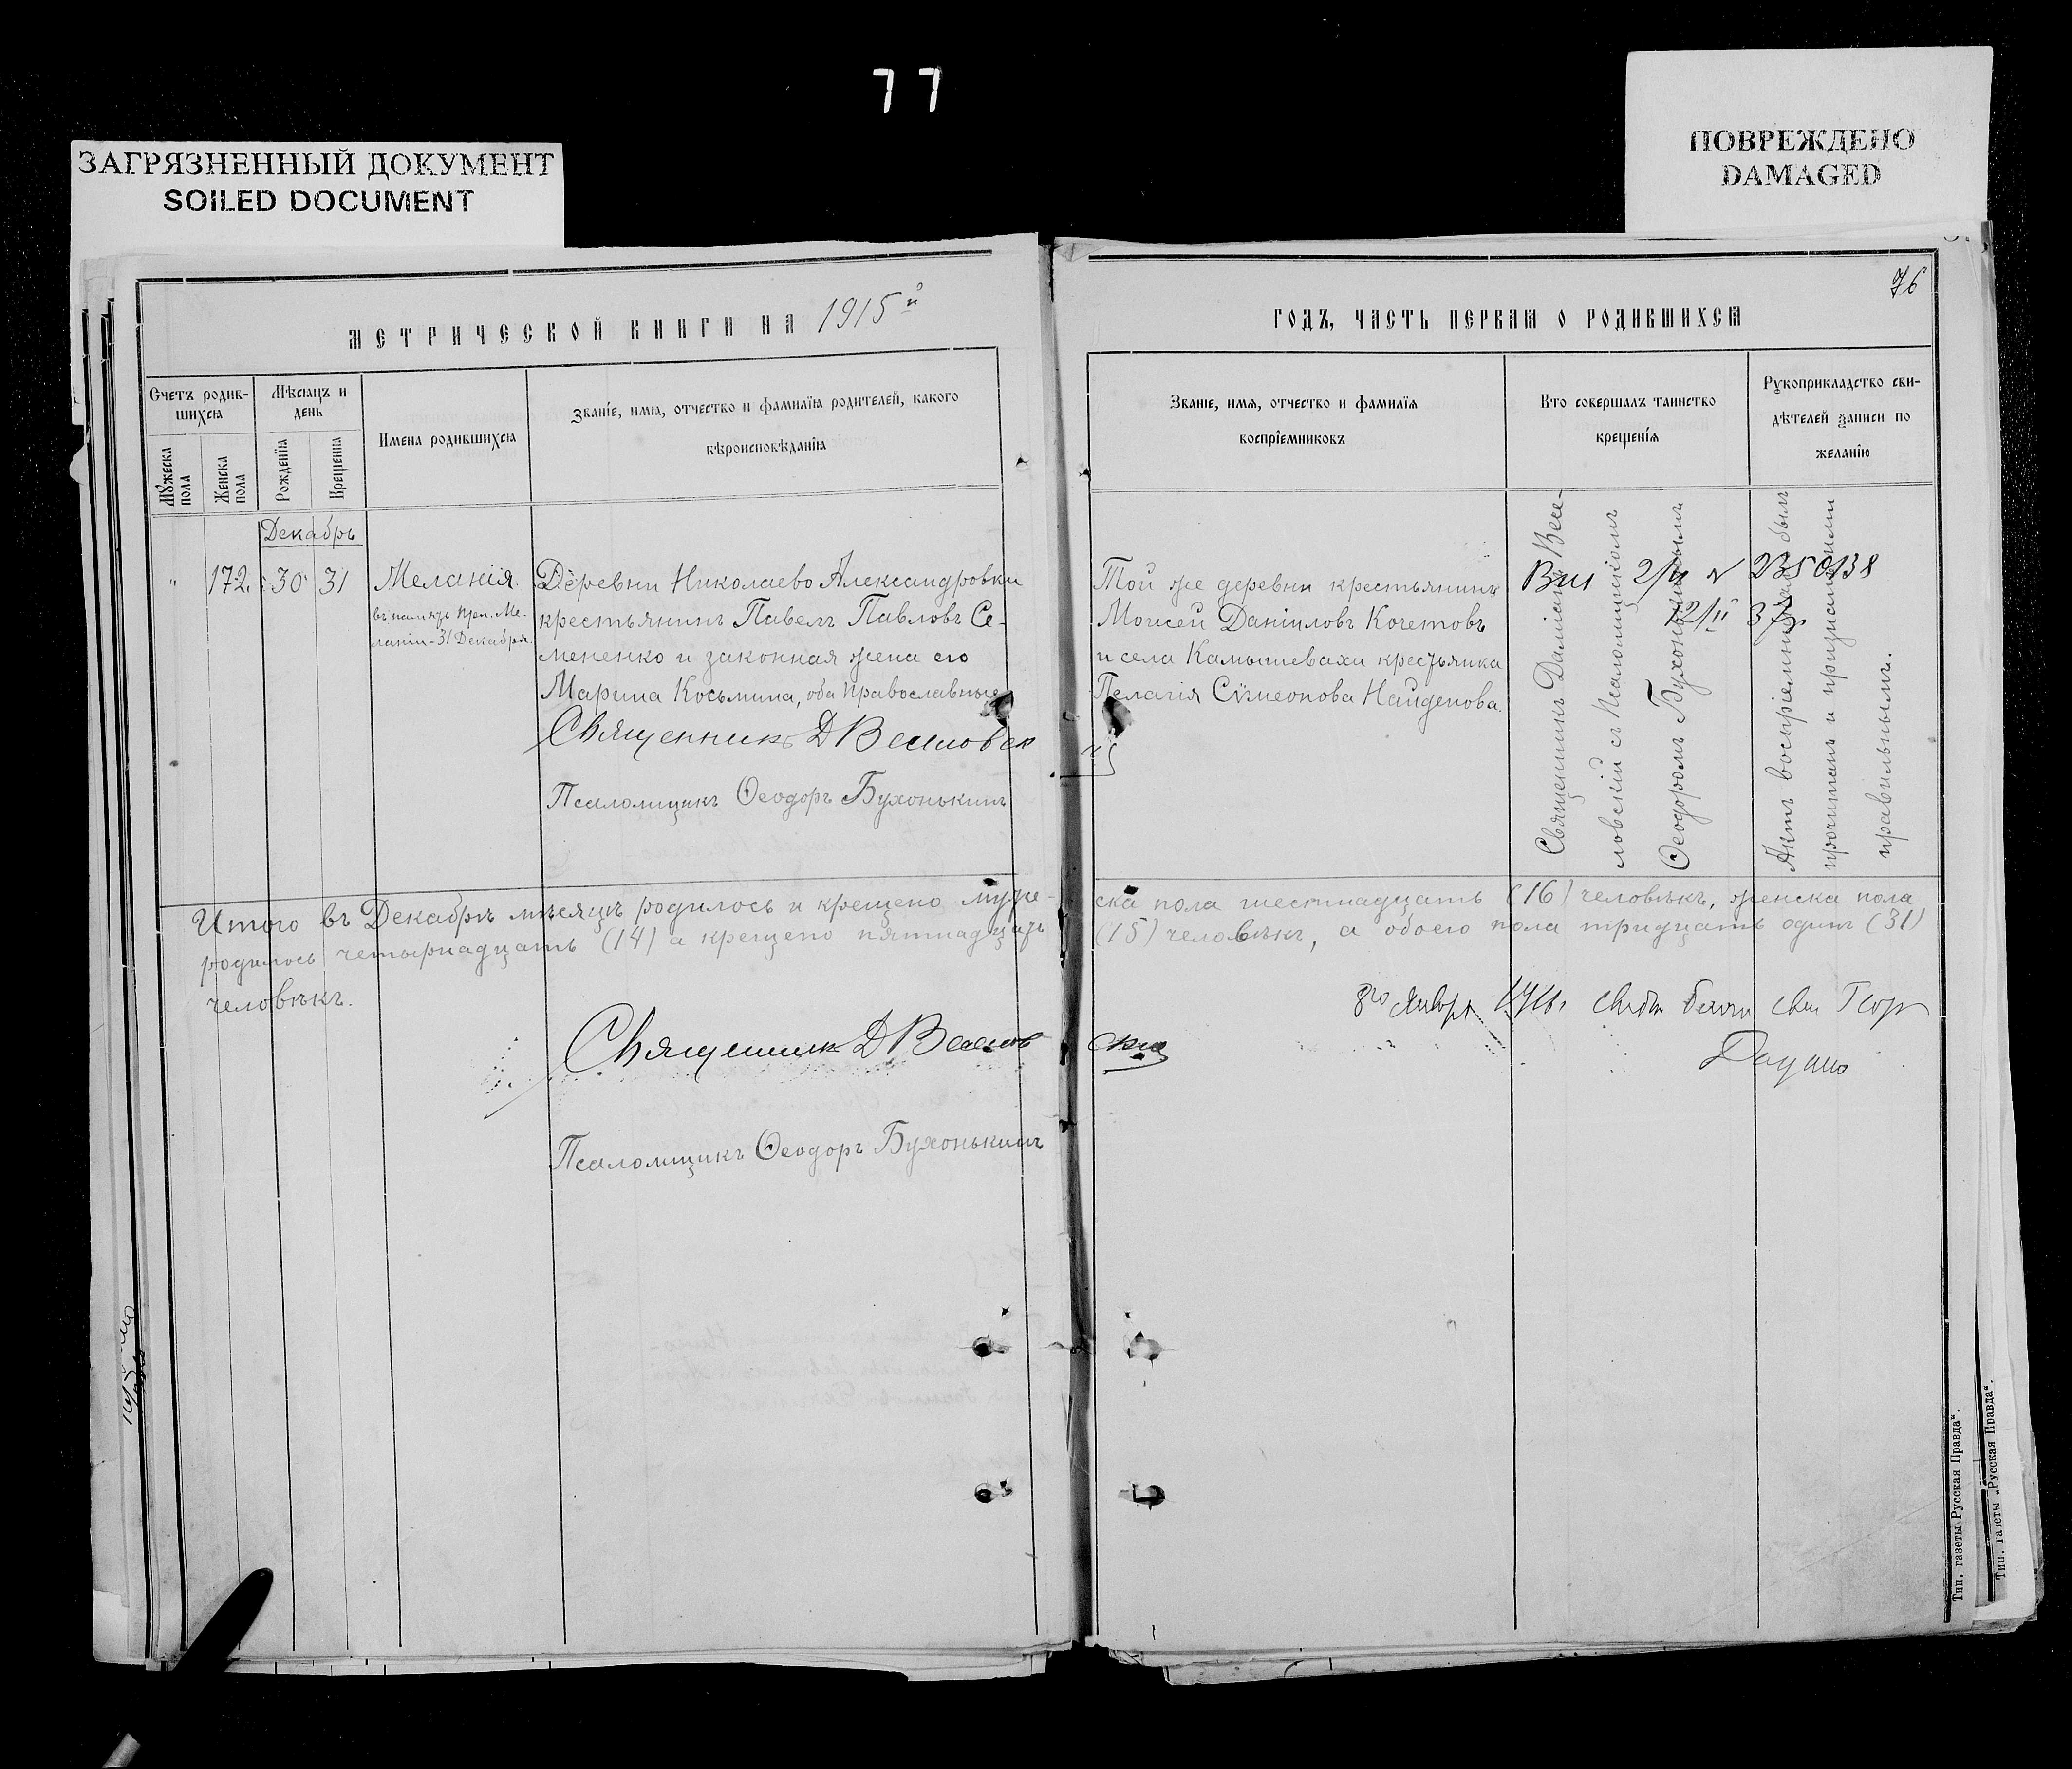 77
ЗАГРЯЗНЕННЫЙ ДОКУМЕНТ
SOILED DOCUMENT
ПОВРЕЖДЕНО
DAMAGED
76
МЕТРИЧЕСКОЙ КНИГИ НА 1915й
Счетъ родив-
шихся
Мѣсяцъ и
день
Мужеска
пола
Женска
пола
Рожденія
Крещенія
Имена родившихся
Званіе, имя, отчество и фамилія родителей, какого
вѣроисповѣданія
Декабрь
" 172. 30 31
Меланія.
въ память Прп. Ме-
ланіи-31 Декабря.
Деревни Николаево Александровки
крестьянинъ Павелъ Павловъ Се-
мененко и законная жена его
Марина Косьмина, оба православные
Священникъ Д Веселовск
Псаломщикъ Ѳеодоръ Бухонькинъ
ГОДЪ, ЧАСТЬ ПЕРВАЯ О РОДИВШИХСЯ
Званіе, имя, отчество и фамилія
воспріемниковъ
Кто совершалъ таинство
крещенія
Рукоприкладство сви-
дѣтелей записи по
желанію
Той же деревни крестьянинъ
Моисей Даніиловъ Кочетовъ
и села Камышевахи крестьянка
Пелагія Сѵмеонова Найденова.
Священникъ Даміанъ Весе-
ловскій съ Псаломщикомъ
Ѳеодоромъ Бухонькинымъ
2350138
12/II 37г.
Актъ воспріемникамъ былъ
прочитанъ и признанъ ими
правильнымъ.
Итого въ Декабрѣ мѣсяцѣ родилось и крещено муже-
ска пола шестнадцать (16) человѣкъ, женска пола
родилось четырнадцать (14) а крещено пятнадцать
(15) человѣкъ, а обоего пола тридцать одинъ (31)
человѣкъ.
Священникъ Д Веселов
скій
Псаломщикъ Ѳеодоръ Бухонькинъ
Января
Тип. газеты Русская Правда".
Тип. газеты „Русская Правда".